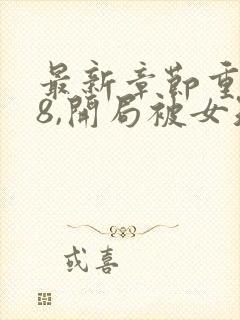 最新章節重
8,開局被女
或喜